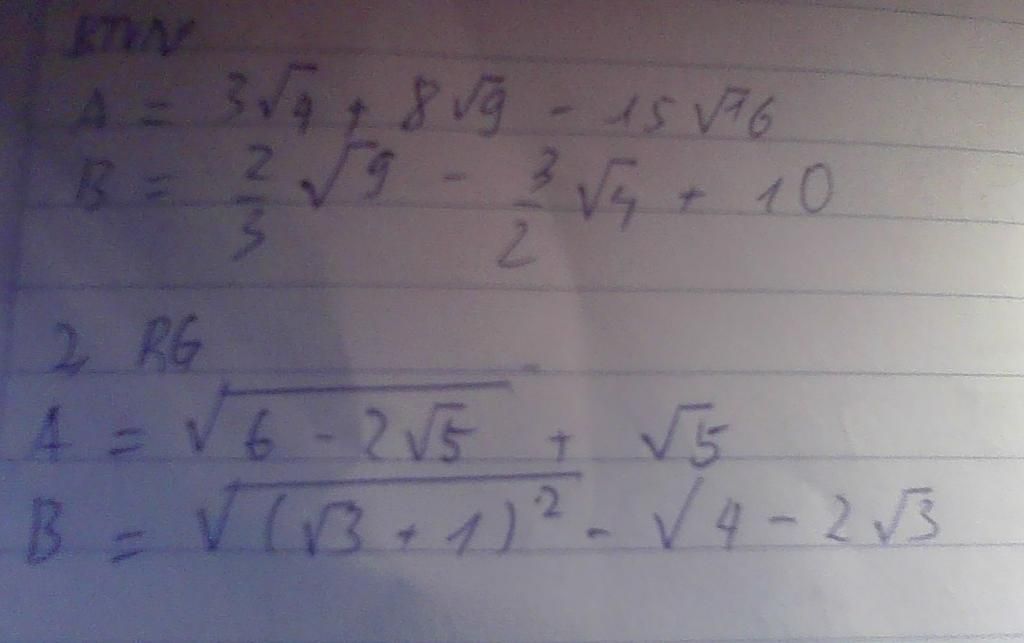 A = 3√4 + 8√9 - 15√16
B = 2/3 √9 - 3/2 √4 + 10
2 RG
A = √(6 - 2√5) + √5
B = √((√3 + 1)²) - √4 - 2√3